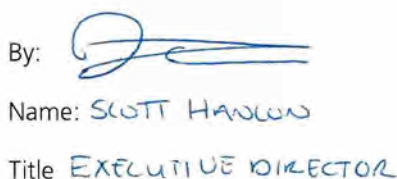 By:
Name: SCOTT HANLON
Title EXECUTIVE DIRECTOR